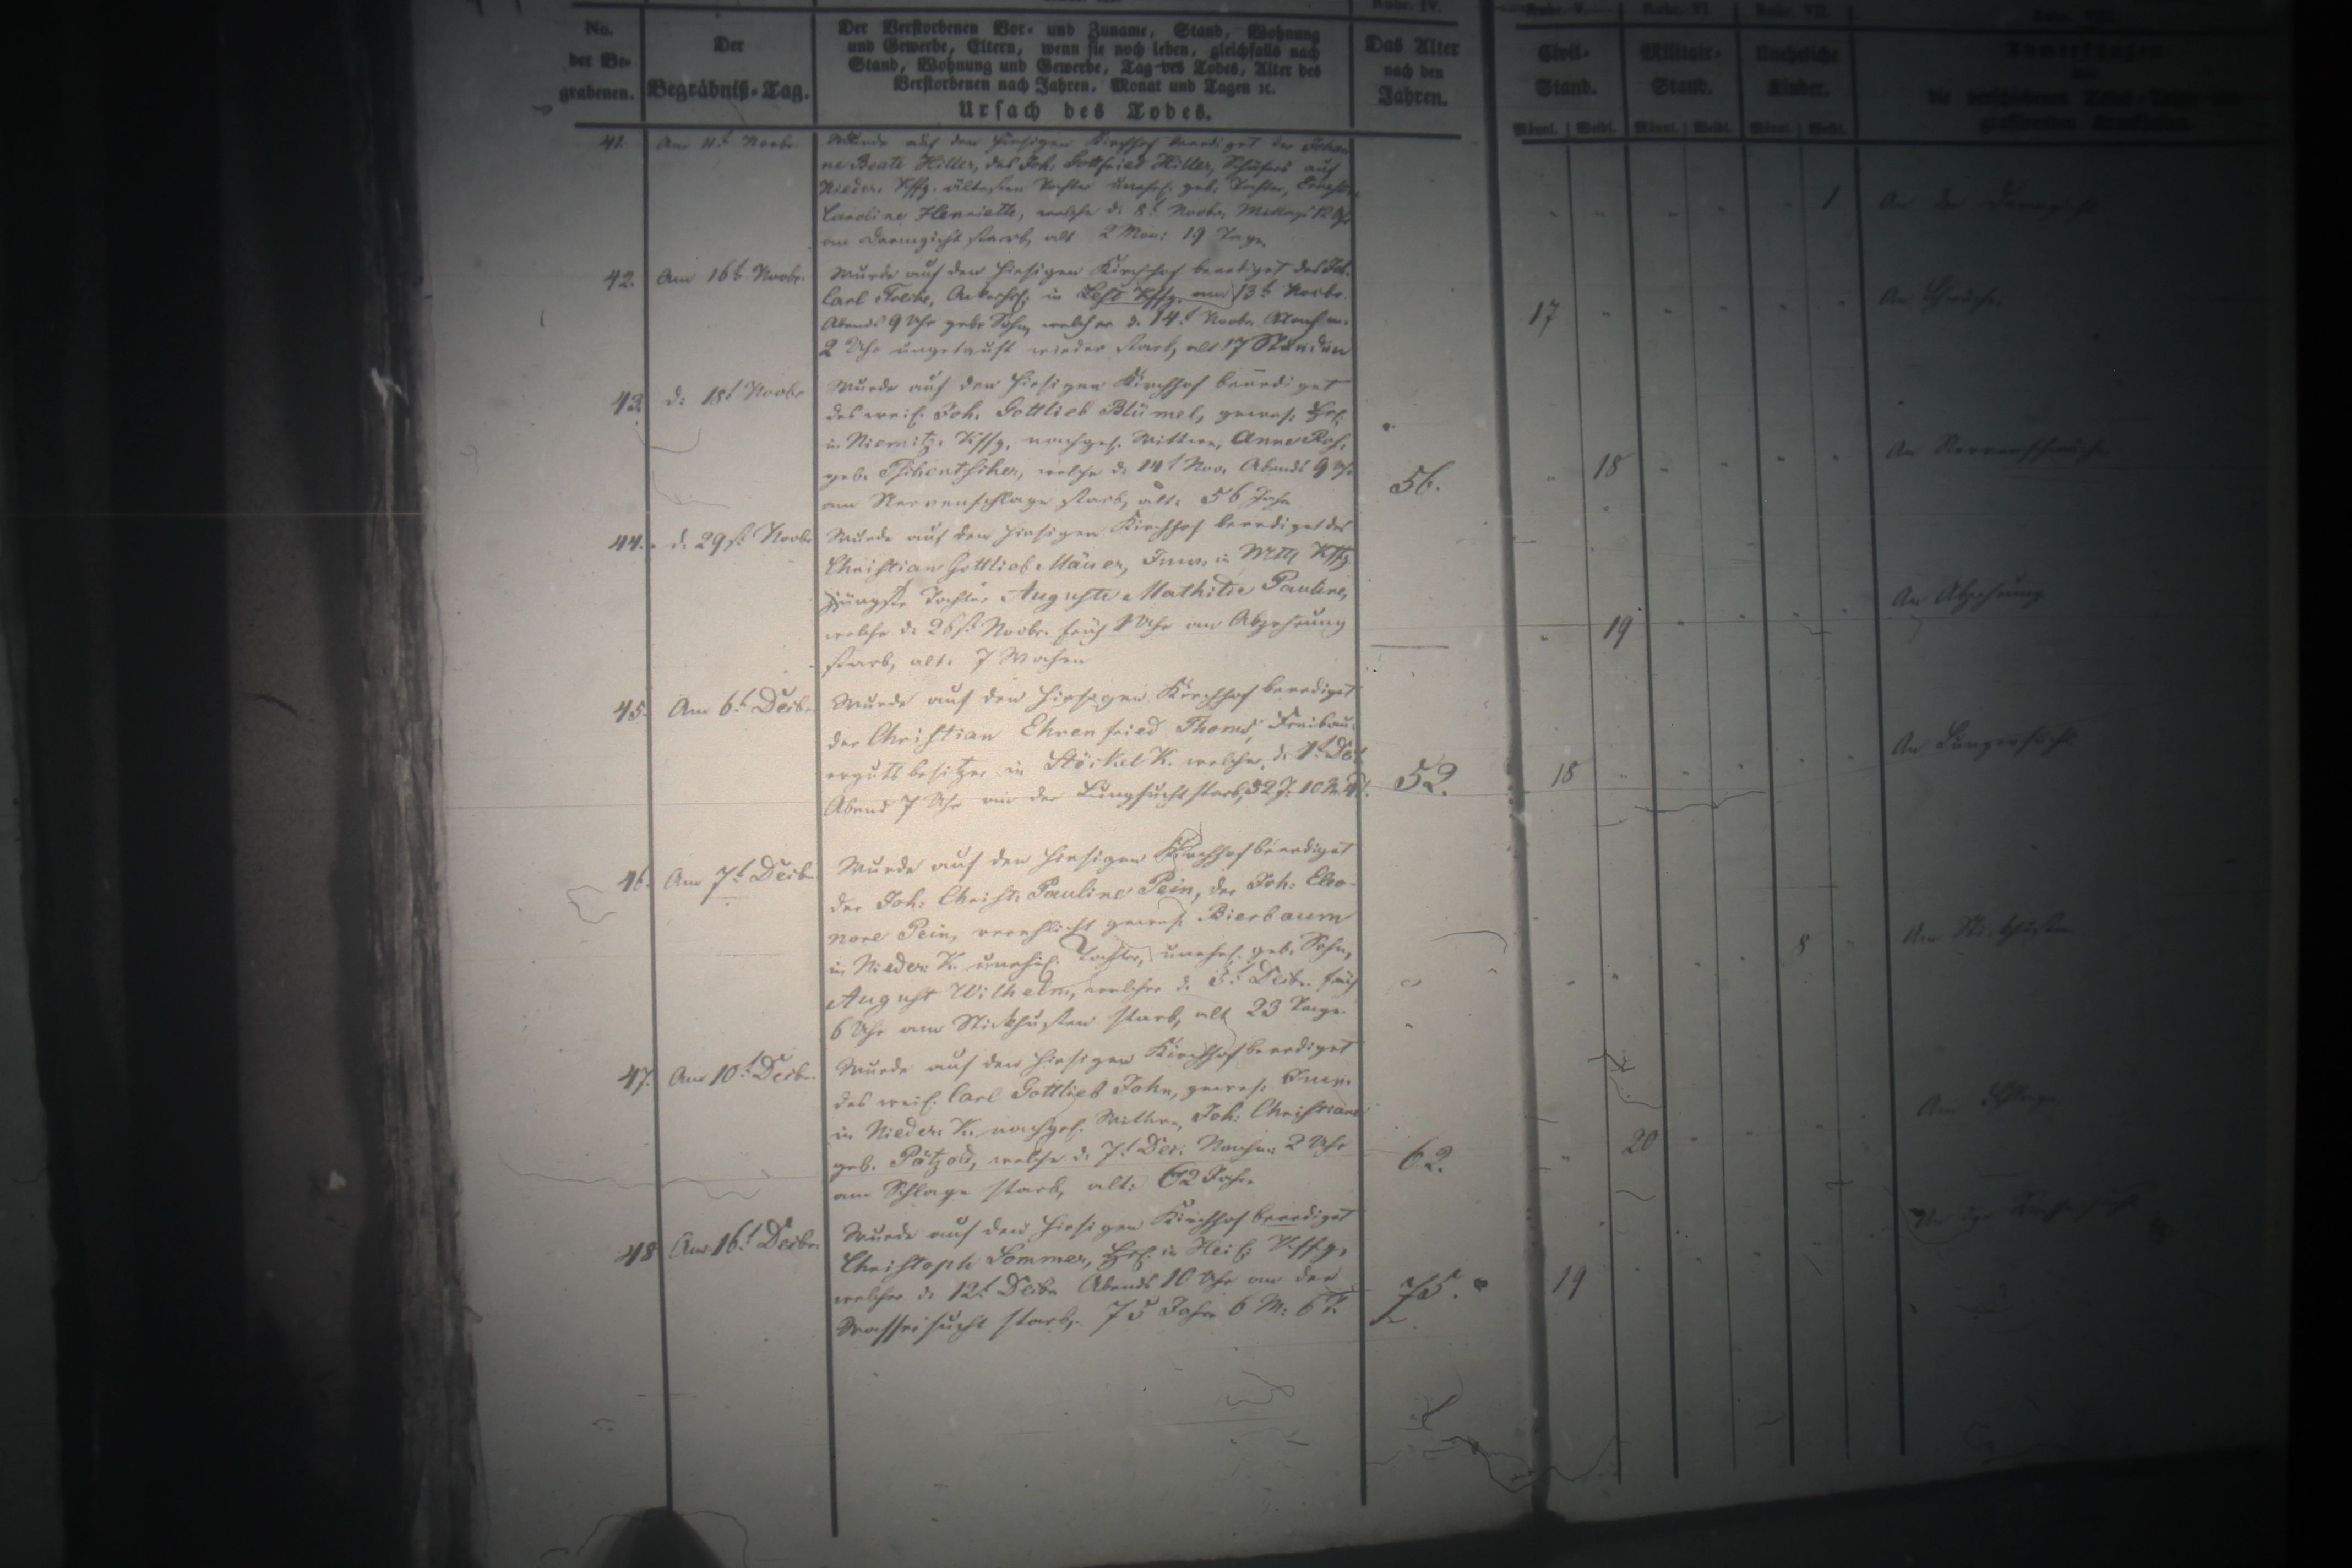 Rubr. IV.
Rubr. V. Rubr. VI. Rubr. VII.
No.
der Be-
grabenen.
Der
Begräbniß-Tag.
Der Verstorbenen Vor- und Zuname, Stand, Wohnung
und Gewerbe, Eltern, wenn sie noch leben, gleichfalls nach
Stand, Wohnung und Gewerbe, Tag des Todes, Alter des
Verstorbenen nach Jahren, Monat und Tagen ꝛc.
Ursach des Todes.
Das Alter
nach den
Jahren.
Civil-
Stand.
Militair-
Stand.
Uneheliche
Kinder.
Anmerkungen
Männl. Weibl. Männl. Weibl. Männl. Weibl.
41. Am 11t Novbr.
Wurde auf den hiesigen Kirchhof beerdiget der Johan
ne Beate Hiller, des Joh. Gottfried Hiller, Schäfers auf
Nieder Kffg. ältesten Tochter unehel. geb. Tochter,
Caroline Henriette, welche d. 8t Novbr. Mittags 12 Uhr
an Darmgicht starb, alt 2 Mon: 19 Tage
1 An der Darmgicht
42. Am 16t Novbr.
Wurde auf den hiesigen Kirchhof beerdiget des Joh.
Carl Freche, in Kffg. am 13t Novbr.
Abends 9 Uhr geb. Sohn, welcher d. 14t Novbr. Nachm.
2 Uhr ungetauft wieder starb, alt 17 Stunden
17 An Schwäche
43. d. 18t Novbr
Wurde auf den hiesigen Kirchhof beerdiget
des weil. Joh. Gottlieb Blümel, gewes.
in Niemitz Kffg. nachgel. Wittwe, Anne Ros.
geb. welche d. 14t Nov. Abends 9 Uhr
am Nervenschlage starb, alt. 56 Jahr
56. 18 An Nervenschwäche
44. d. 29st Novbr
Wurde auf den hiesigen Kirchhof beerdiget des
Christian Gottlieb Mäuer, Inw. in Mttl Kffg
jüngste Tochter Auguste Mathilde Pauline,
welche d. 26st Novbr. früh 1 Uhr an Abzehrung
starb, alt. 7 Wochen
19 An Abzehrung
45. Am 6t Decbr.
Wurde auf den hiesigen Kirchhof beerdiget
der Christian Ehrenfried Thoms, Freibau-
ergutsbesitzer in Stöckel K. welcher d. 1t Dec
Abend 7 Uhr an der Lungsucht starb, 52 J. 10 M.
52. 18 An Lungensucht
46. Am 7t Decbr
Wurde auf den hiesigen Kirchhof beerdiget
der Joh: Christ. Pauline Pein, der Joh: Eleo-
nore Pein, verehlicht gewes. Bierbaum
in Nieder K. unehel. Tochter, unehel. geb. Sohn,
August Wilhelm, welcher d. 5t Decbr. früh
6 Uhr am Stickhusten starb, alt 23 Tage.
8 Am Stickhusten
47. Am 10t Decbr.
Wurde auf den hiesigen Kirchhof beerdiget
des weil. Carl Gottlieb John, gewes. Inw.
in Nieder K. nachgel. Wittwe, Joh: Christiane
geb. Pätzold, welche d. 7t Dec. Nachm. 2 Uhr
am Schlage starb, alt: 62 Jahr
62. 20 Am Schlage
48 Am 16t Decbr.
Wurde auf den hiesigen Kirchhof beerdiget
Christoph Sommer, in Kffg.
welcher d. 12t Decbr Abends 10 Uhr an der
Wassersucht starb, 75 Jahr 6 M: 6 T.
75. 19